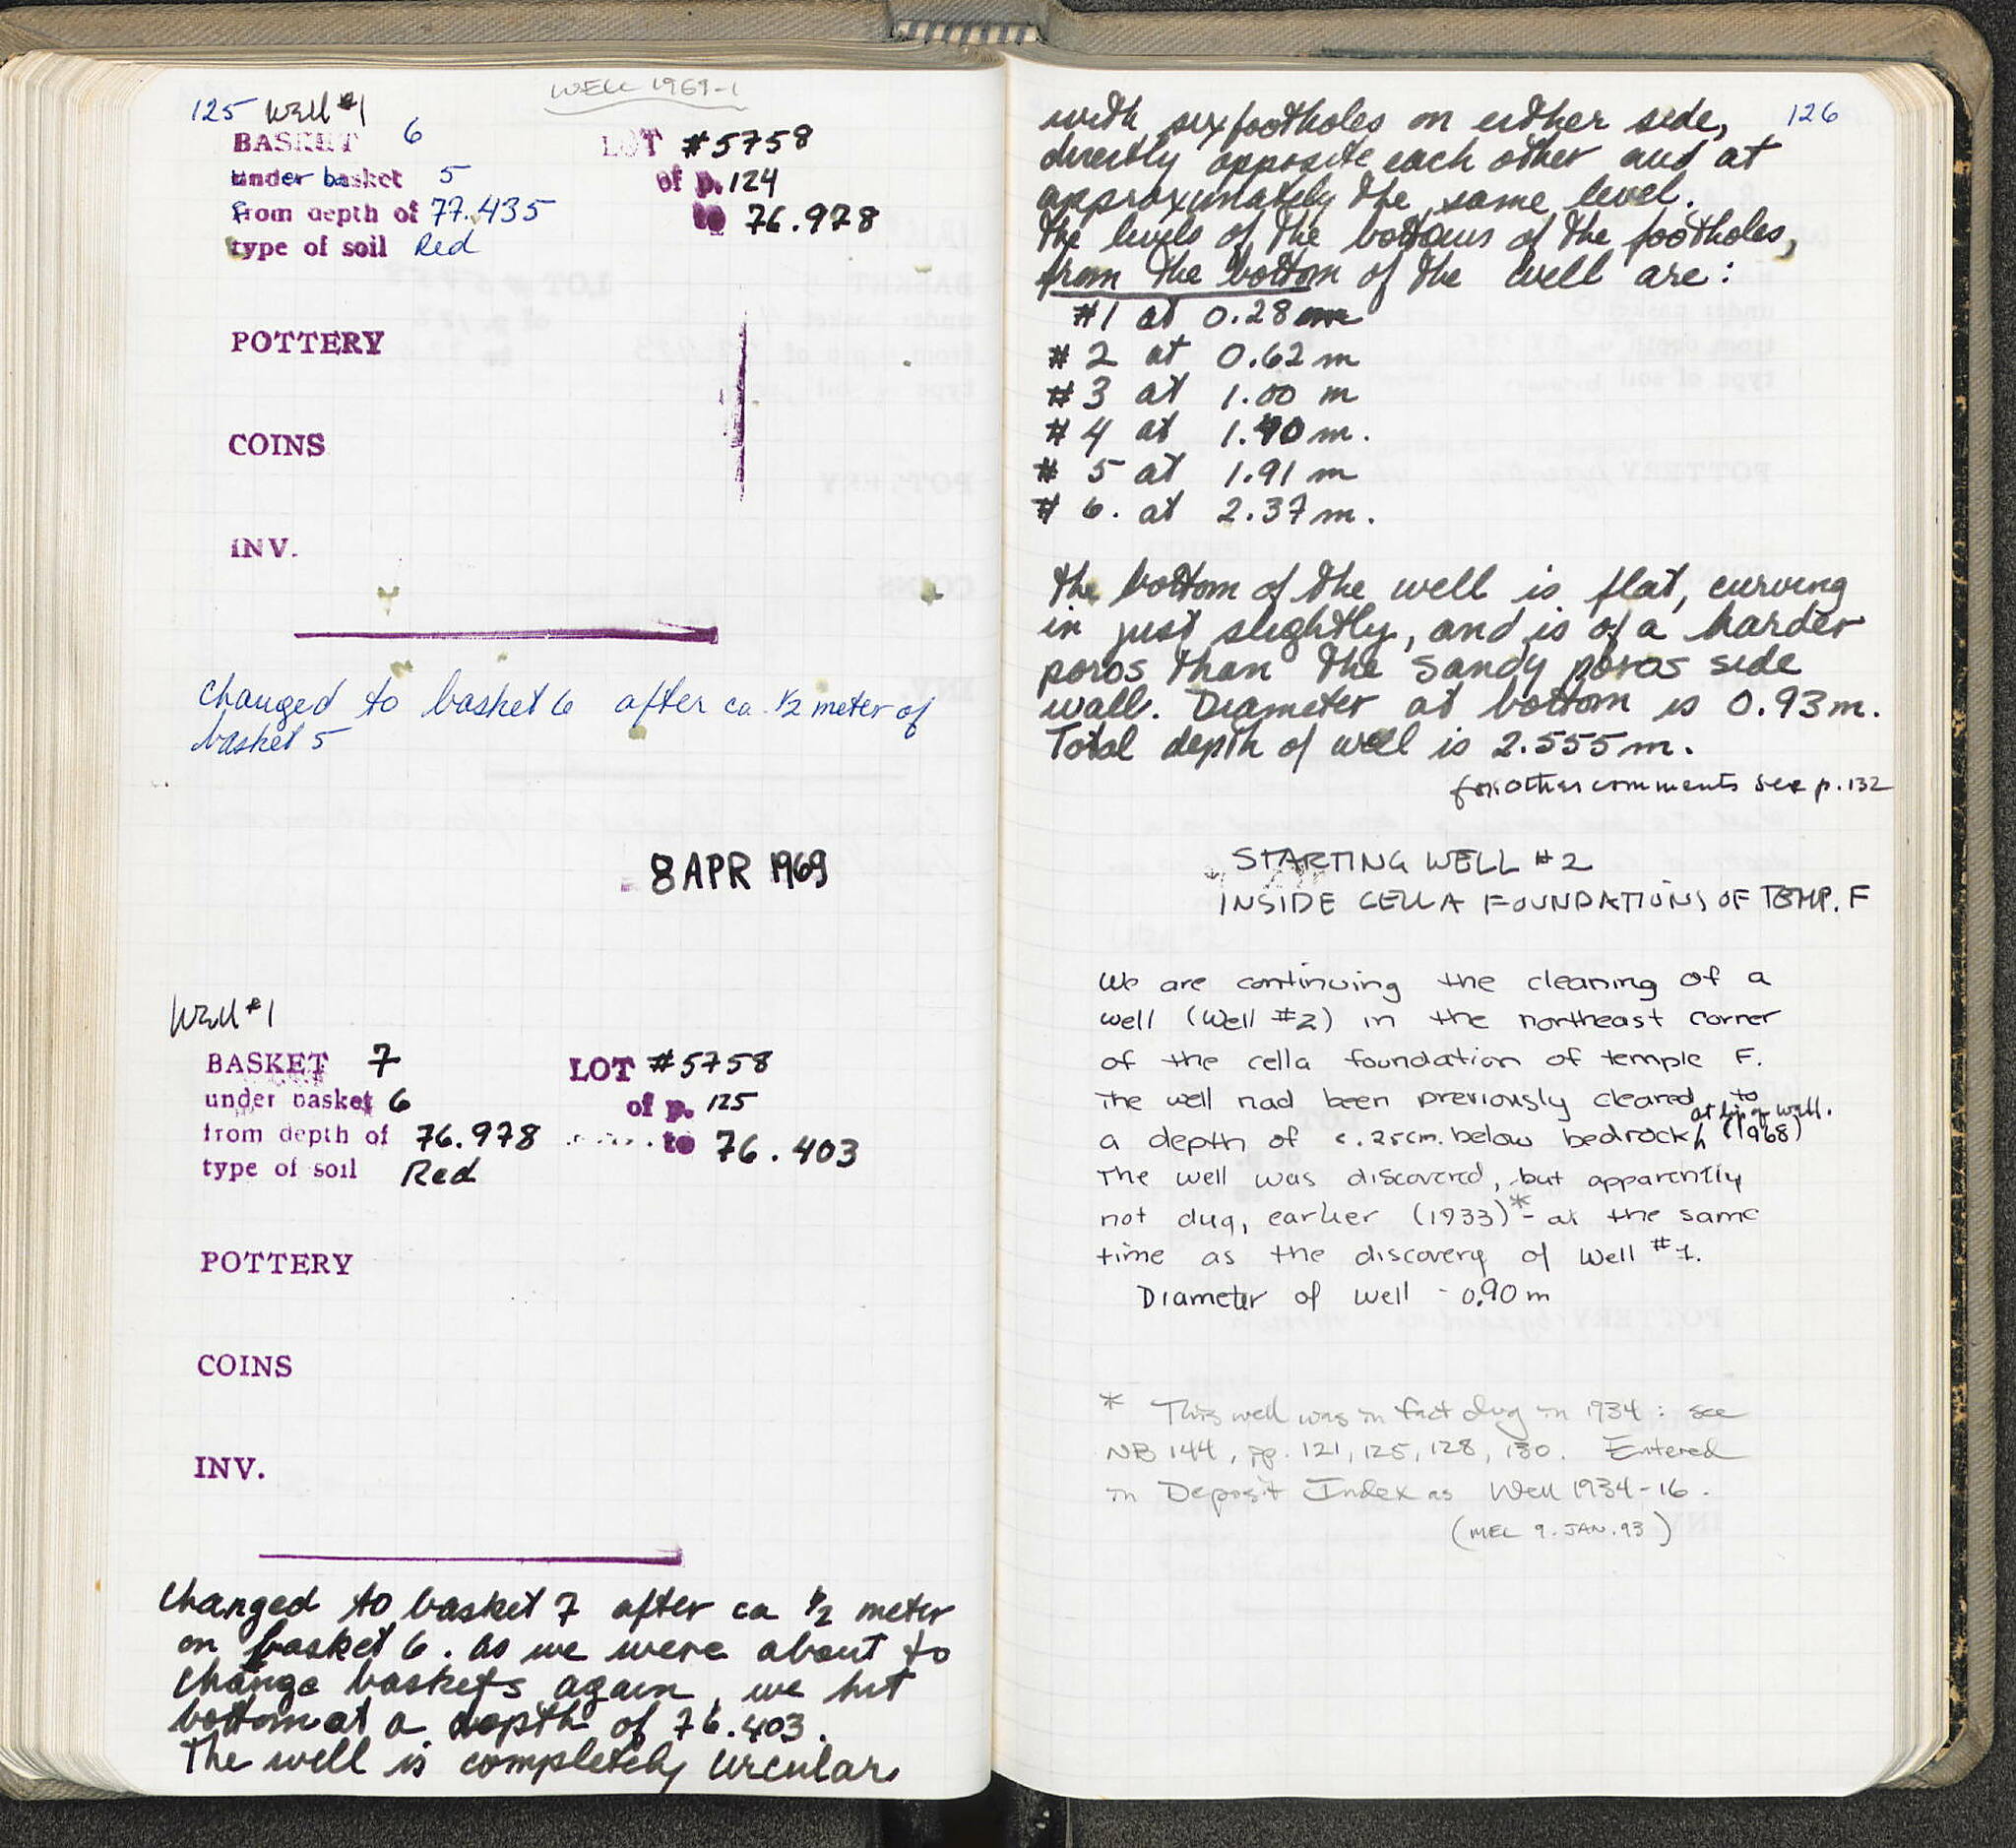 WELL 1969-1
125 Well #1
BASKET 6 LOT #5758
under basket 5 of p. 124
from depth of 77.435 to 76.978
type of soil Red
POTTERY
COINS
INV.
Changed to basket 6 after ca. 1/2 meter of
basket 5
8 APR 1969
Well #1
BASKET 7 LOT #5758
under basket 6 of p. 125
from depth of 76.978 to 76.403
type of soil Red
POTTERY
COINS
INV.
Changed to basket 7 after ca 1/2 meter
on basket 6. As we were about to
change baskets again, we hit
bottom at a depth of 76.403.
The well is completely circular,
126
with six footholes on either side,
directly opposite each other and at
approximately the same level.
The levels of the bottoms of the footholes,
from the bottom of the well are:
#1 at 0.28 m
#2 at 0.62 m
#3 at 1.00 m
#4 at 1.40 m.
#5 at 1.91 m
#6. at 2.37 m.
The bottom of the well is flat, curving
in just slightly, and is of a harder
poros than the sandy poros side
wall. Diameter at bottom is 0.93 m.
Total depth of well is 2.555 m.
for other comments see p. 132
STARTING WELL #2
INSIDE CELLA FOUNDATIONS OF TEMP. F
We are continuing the cleaning of a
well (Well #2) in the northeast corner
of the cella foundation of temple F.
The well had been previously cleared to
at lip of well.
a depth of c. 25cm. below bedrock (1968)
The well was discovered, but apparently
not dug, earlier (1933)* - at the same
time as the discovery of Well #1.
Diameter of well - 0.90 m
* This well was in fact dug in 1934: see
NB 144, pp. 121, 125, 128, 130. Entered
in Deposit Index as Well 1934-16.
(MEL 9. JAN. 93)